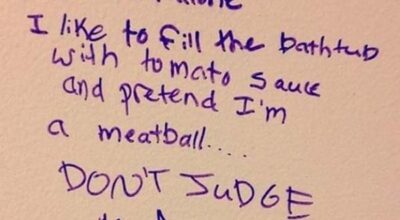 I like to fill the bathtub
with tomato sauce
and pretend I'm
a meatball....
DON'T JUDGE